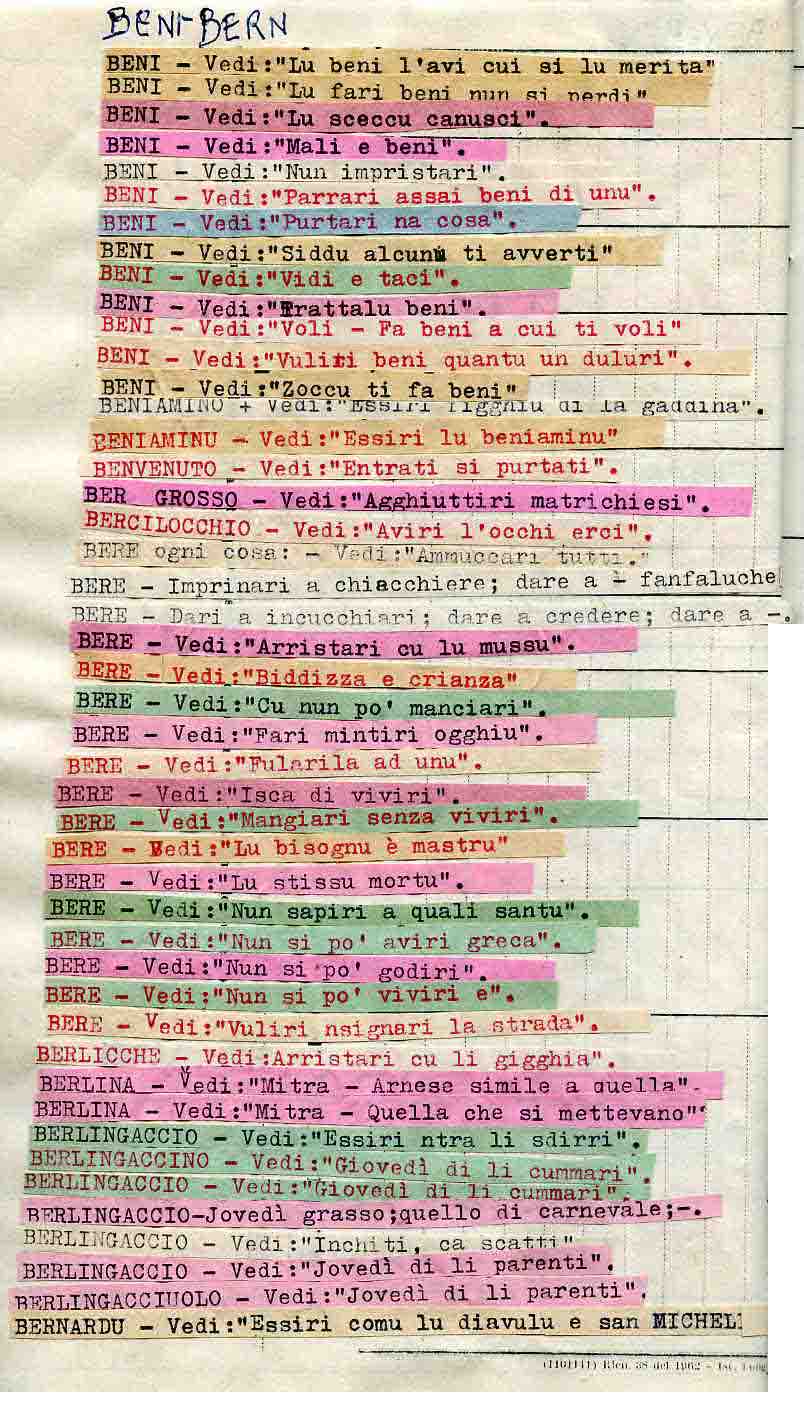 BENI-BERN
BENI - Vedi:"Lu beni l'avi cui si lu merita"
BENI - Vedi:"Lu fari beni nun si perdi"
BENI - Vedi:"Lu sceccu canusci".
BENI - Vedi:"Mali e beni".
BENI - Vedi:"Nun impristari".
BENI - Vedi:"Parrari assai beni di unu".
BENI - Vedi:"Purtari na cosa".
BENI - Vedi:"Siddu alcunu ti avverti"
BENI - Vedi:"Vidi e taci".
BENI - Vedi:"Trattalu beni".
BENI - Vedi:"Voli - Fa beni a cui ti voli"
BENI - Vedi:"Vuliri beni quantu un duluri".
BENI - Vedi:"Zoccu ti fa beni"
BENIAMINO + Vedi:"Essiri figghiu di la gaddina".
BENIAMINU - Vedi:"Essiri lu beniaminu"
BENVENUTO - Vedi:"Entrati si purtati".
BER GROSSO - Vedi:"Agghiuttiri matrichiesi".
BERCILOCCHIO - Vedi:"Aviri l'occhi erci".
BERE ogni cosa: - Vedi:"Ammuccari tutti."
BERE - Imprinari a chiacchiere; dare a - fanfaluche
BERE - Dari a incucchiari; dare a credere; dare a -.
BERE - Vedi:"Arristari cu lu mussu".
BERE - Vedi:"Biddizza e crianza"
BERE - Vedi:"Cu nun po' manciari".
BERE - Vedi:"Fari mintiri ogghiu".
BERE - Vedi:"Fularila ad unu".
BERE - Vedi:"Isca di viviri".
BERE - Vedi:"Mangiari senza viviri".
BERE - Vedi:"Lu bisognu è mastru"
BERE - Vedi:"Lu stissu mortu".
BERE - Vedi:"Nun sapiri a quali santu".
BERE - Vedi:"Nun si po' aviri greca".
BERE - Vedi:"Nun si po' godiri".
BERE - Vedi:"Nun si po' viviri e".
BERE - Vedi:"Vuliri nsignari la strada".
BERLICCHE - Vedi:Arristari cu li gigghia".
BERLINA - Vedi:"Mitra - Arnese simile a quella".
BERLINA - Vedi:"Mitra - Quella che si mettevano"'
BERLINGACCIO - Vedi:"Essiri ntra li sdirri".
BERLINGACCINO - Vedi:"Giovedì di li cummari".
BERLINGACCIO - Vedi:"Giovedì di li cummari".
BERLINGACCIO-Jovedì grasso;quello di carnevale;-.
BERLINGACCIO - Vedi:"Inchiti, ca scatti"
BERLINGACCIO - Vedi:"Jovedì di li parenti".
BERLINGACCIUOLO - Vedi:"Jovedì di li parenti".
BERNARDU - Vedi:"Essiri comu lu diavulu e san MICHEL
(1101111) Rich. 38 del 1962 - Ist.